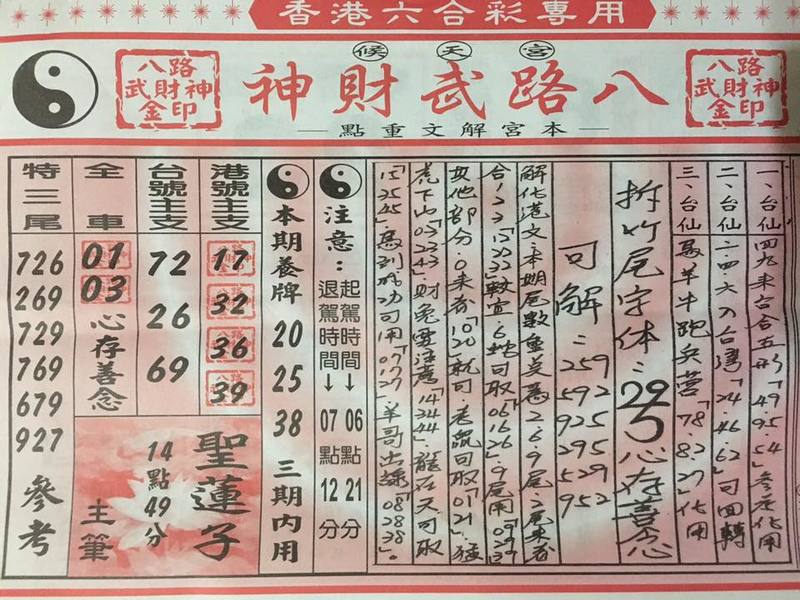 香港六合彩專用
候天宮
八路武財神
八路武財神金印
八路武財神金印
本宮解文重點
一、台仙 四九來台合五形「49.95.54」參考化用
二、台仙 二.四六入台灣「24.46.62」可回轉
三、台仙 馬羊牛跑兵營「78.82.27」化用
拆竹尾字体：29了心存善念
可解：259
592
925
295
529
952
解化港文：本期尾數重美意2.6.9尾：2尾來看
合123「122232」較宜6蛇可取「061626」9尾用
其他部分.0來看「1020」就可.老鼠可取「0121」.猛
虎下山「032343」.財兔要注意「143444」.龍在天可取
「152545」馬到成功可用「071727」.羊哥出談「082838」。
注意：
起駕時間↓06點21分
退駕時間↓07點12分
本期養牌 20 25 38 三期內用
港號主支
17
32
36
39
台號主支
72
26
69
全車
01
03
心存善念
特三尾
726
269
729
769
679
927
參考
聖蓮子
14點49分
主筆